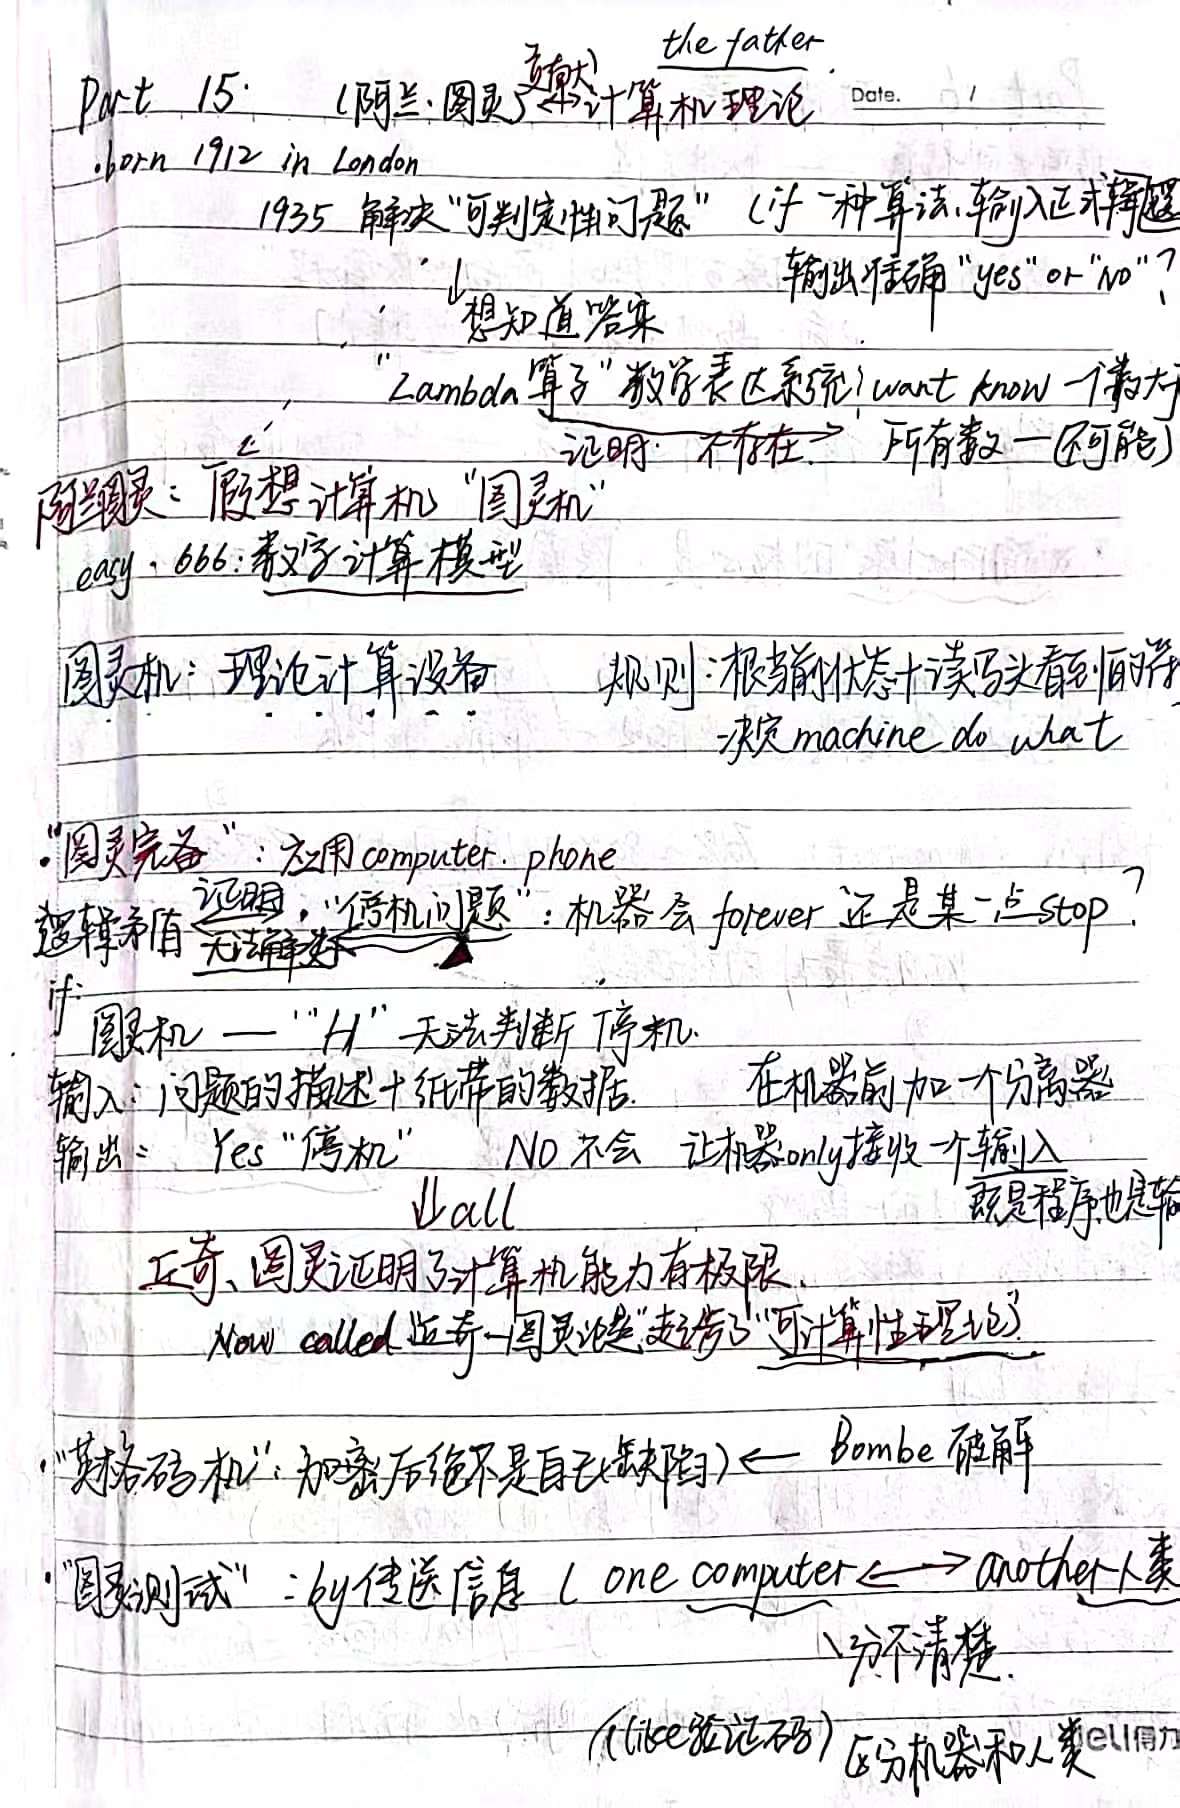 the father
Part 15. (阿兰·图灵) 贡献大 计算机理论 Date. /
·born 1912 in London
1935 解决"可判定性问题" (if 一种算法,输入正式逻辑
输出准确"yes" or "No"?
↓想知道答案
"Lambda算子"数学表达系统 want know 一个数大于
证明: 不存在 → 所有数 — (不可能)
阿兰图灵: 假想计算机 "图灵机"
easy · 666: 数字计算模型
图灵机: 理论计算设备 规则:根当前状态+读写头看到的符
决定machine do what
·"图灵完备": 应用computer. phone
逻辑矛盾 ← 证明 无法解决 ·"停机问题": 机器会 forever 还是某一点stop?
if:
图灵机 — "H" 无法判断 停机.
输入: 问题的描述+纸带的数据. 在机器前加一个分离器
输出: Yes "停机" NO 不会 让机器only接收一个输入
既是程序也是输
⇓all
丘奇、图灵证明了计算机能力有极限.
Now called 丘奇—图灵论题""可计算性理论"
·"英格码机": 加密后绝不是自己(缺陷) ← Bombe 破解
·"图灵测试": by传送信息 ( one computer ↔ another人类
分不清楚.
(like验证码) 区分机器和人类
deli得力